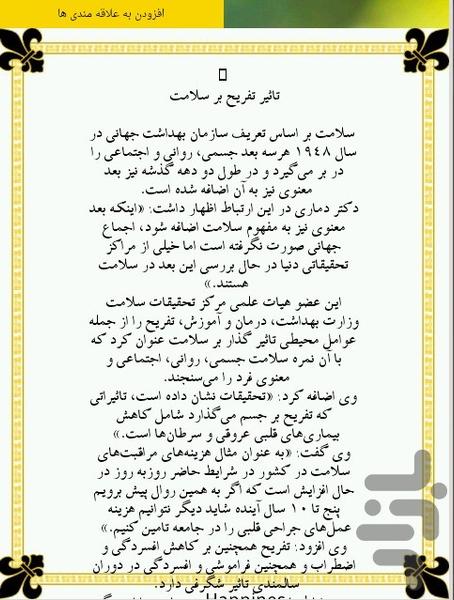 افزودن به علاقه مندی ها
تاثیر تفریح بر سلامت
سلامت بر اساس تعریف سازمان بهداشت جهانی در
سال ۱۹۴۸ هرسه بعد جسمی، روانی و اجتماعی را
در بر می‌گیرد و در طول دو دهه گذشته نیز بعد
معنوی نیز به آن اضافه شده است.
دکتر دماری در این ارتباط اظهار داشت: «اینکه بعد
معنوی نیز به مفهوم سلامت اضافه شود، اجماع
جهانی صورت نگرفته است اما خیلی از مراکز
تحقیقاتی دنیا در حال بررسی این بعد در سلامت
هستند.»
این عضو هیات علمی مرکز تحقیقات سلامت
وزارت بهداشت، درمان و آموزش، تفریح را از جمله
عوامل محیطی تاثیر گذار بر سلامت عنوان کرد که
با آن نمره سلامت جسمی، روانی، اجتماعی و
معنوی فرد را می‌سنجند.
وی اضافه کرد: «تحقیقات نشان داده است، تاثیراتی
که تفریح بر جسم می‌گذارد شامل کاهش
بیماری‌های قلبی عروقی و سرطان‌ها است.»
وی گفت: «به عنوان مثال هزینه‌های مراقبت‌های
سلامت در کشور در شرایط حاضر روزبه روز در
حال افزایش است که اگر به همین روال پیش برویم
پنج تا ۱۰ سال آینده شاید دیگر نتوانیم هزینه
عمل‌های جراحی قلبی را در جامعه تامین کنیم.»
وی افزود: تفریح همچنین بر کاهش افسردگی و
اضطراب و همچنین فراموشی و افسردگی در دوران
سالمندی تاثیر شگرفی دارد.
Happines
بازار